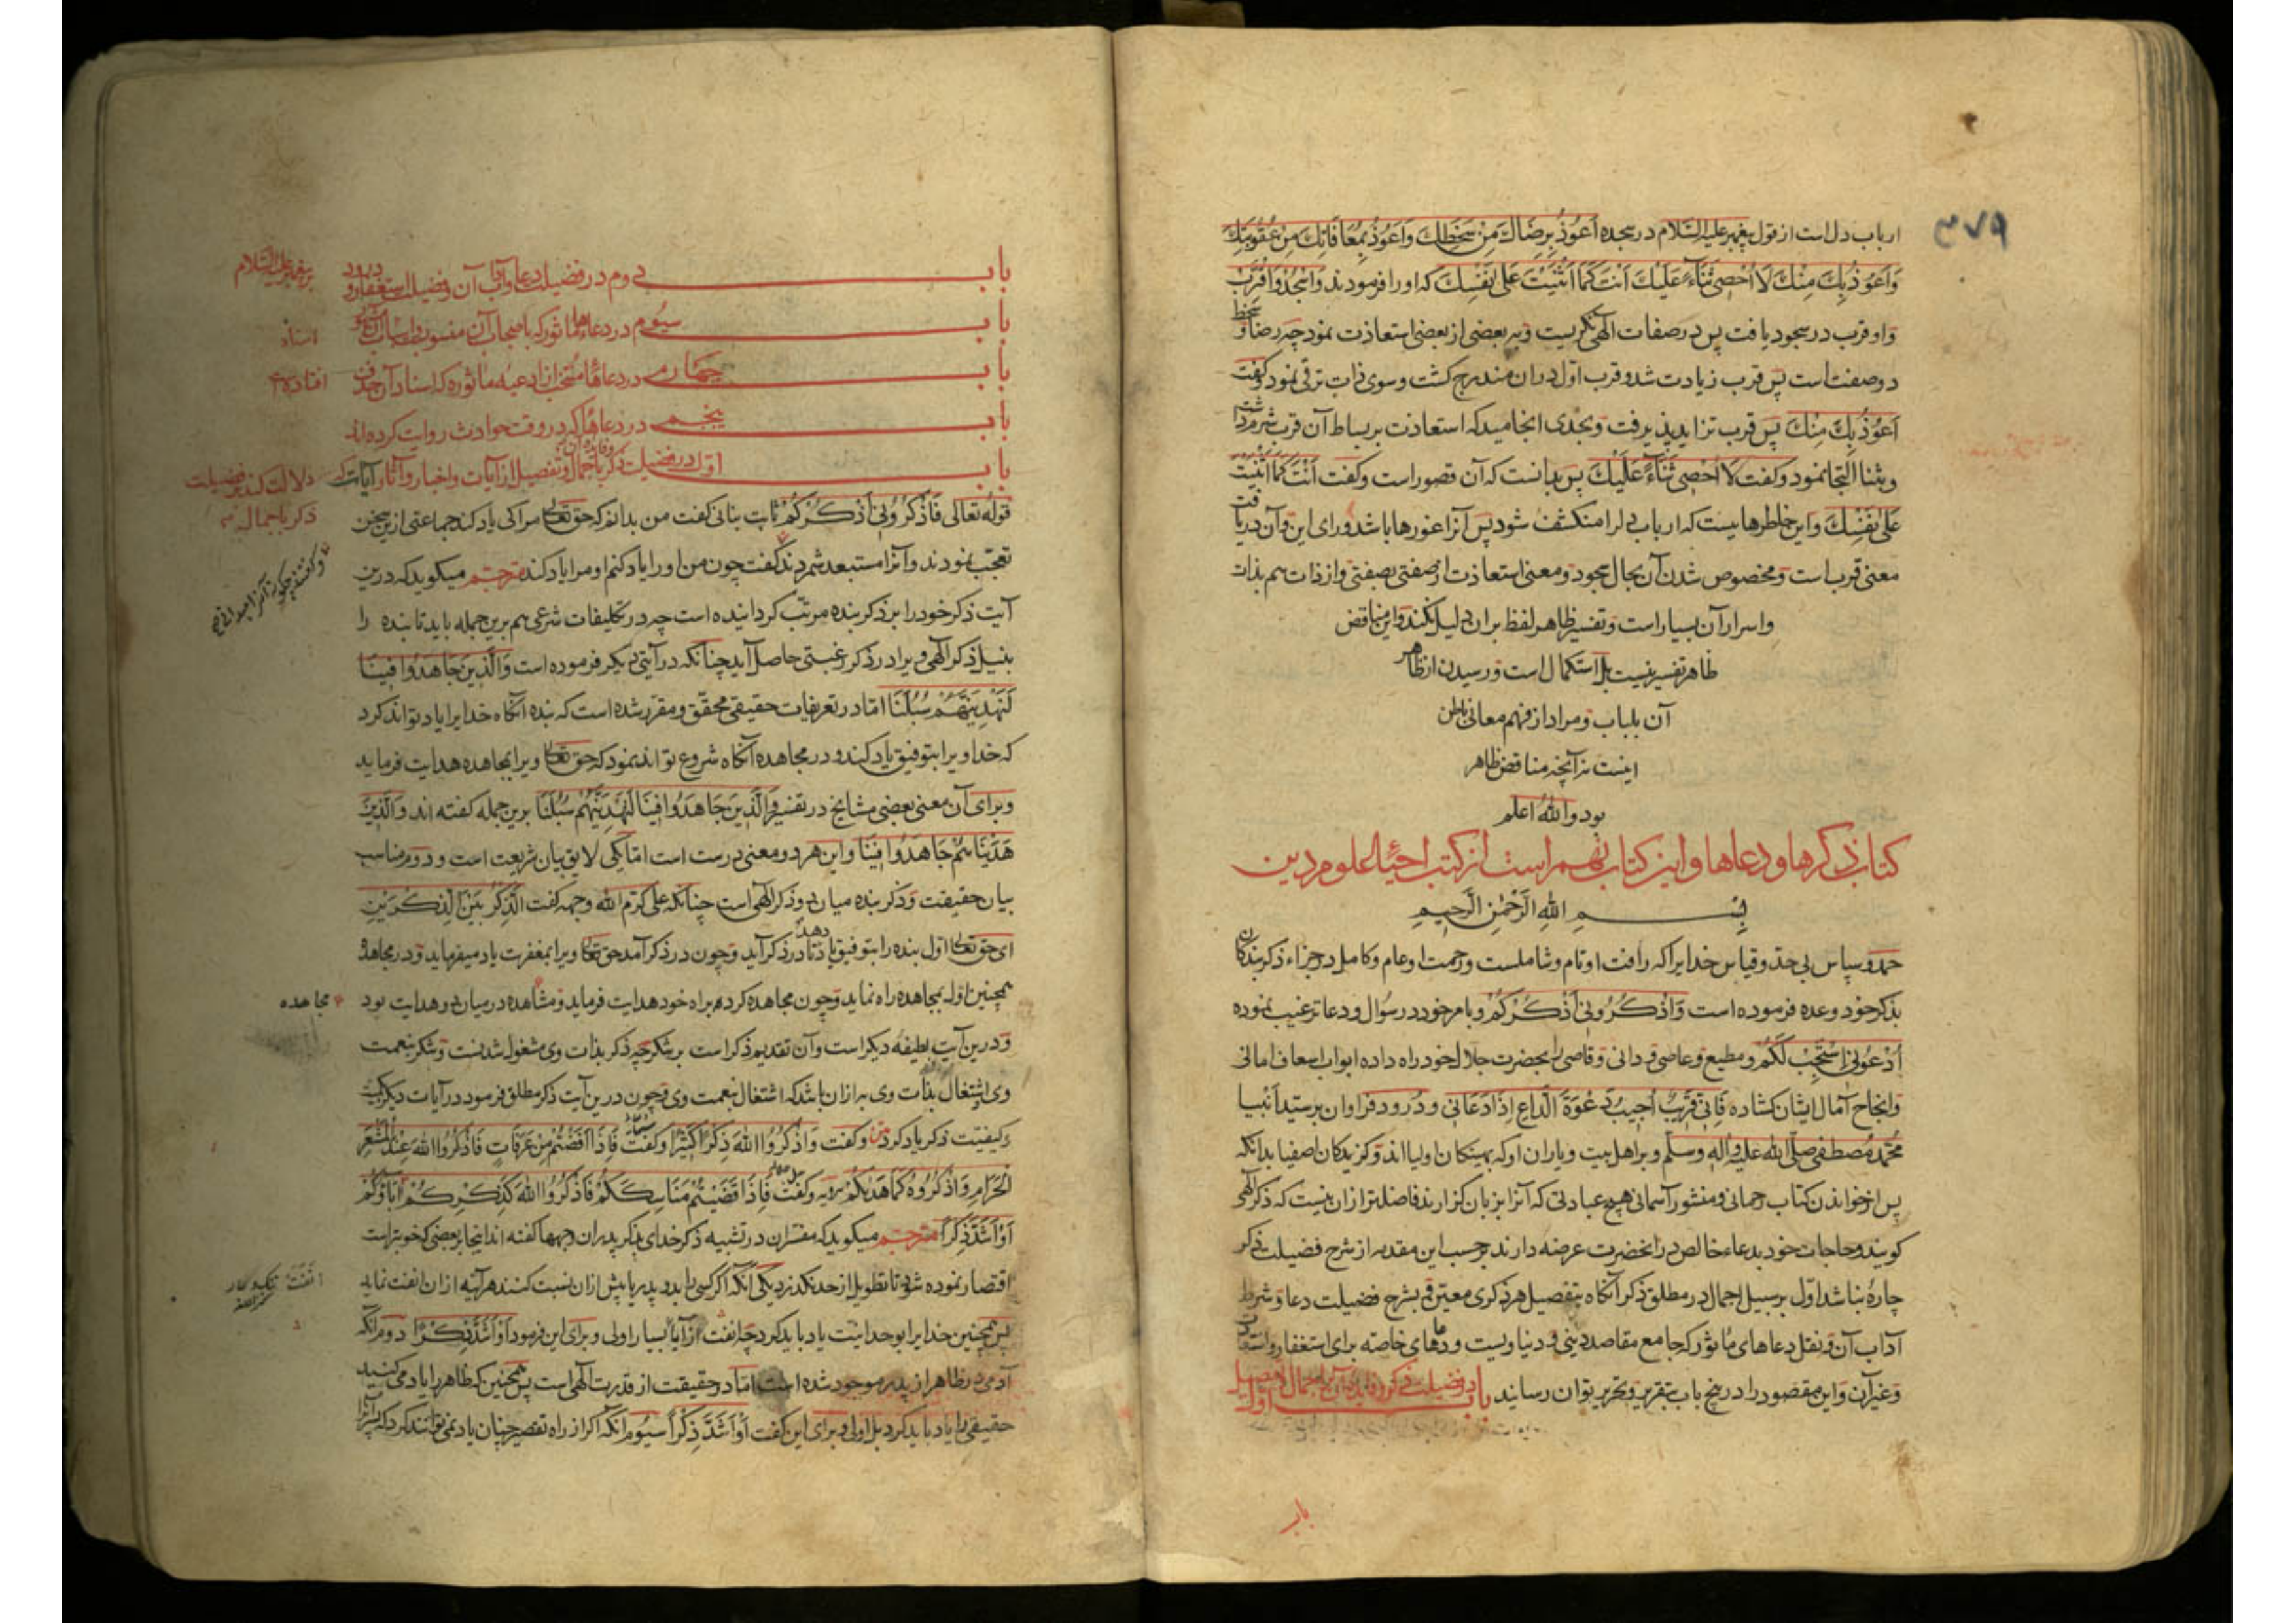 ۳۷۹
ارباب دل است از قول پیغمبر علیه السّلام در سجده اَعُوذُ بِرِضَاكَ مِنْ سَخَطِكَ وَاَعُوذُ بِمُعَافَاتِكَ مِنْ عُقُوبَتِكَ
وَاَعُوذُ بِكَ مِنْكَ لَا اُحْصِی ثَنَاءً عَلَیْكَ اَنْتَ كَمَا اَثْنَیْتَ عَلٰی نَفْسِكَ که او را فرمودند وَاسْجُدْ وَاقْتَرِبْ
و او قرب در سجود یافت پس در صفات الٰهی نکریست و به بعضی از بعضی استعاذت نمود چه رضا و سخط
دو صفت است پس قرب زیادت شد و قرب اوّل در ان مندرج کشت و سوی ذات ترقی نمود و کفت
اَعُوذُ بِكَ مِنْكَ پس قرب تزاید پذیرفت و بحدی انجامید که استعاذت بر بساط آن قرب شرم داشت
و بثنا التجا نمود و کفت لَا اُحْصِی ثَنَاءً عَلَیْكَ پس بدانست که آن قصور است و کفت اَنْتَ كَمَا اَثْنَیْتَ
عَلٰی نَفْسِكَ و این خاطرهاییست که ارباب دل را منکشف شود پس آنرا غورها باشد ورای این و آن دریافت
معنی قرب است و مخصوص شدن آن بحال سجود و معنی استعاذت از صفتی بصفتی و از ذات هم بذات
و اسرار آن بسیار است و تفسیر ظاهر لفظ بران دلیل نکند و این مناقض
ظاهر تفسیر نیست بل استکمال است و رسیدن از ظاهر
آن بلباب و مراد از فهم معانی باطن
اینست نه آنچه مناقض ظاهر
بود والله اعلم
کتاب ذکرها و دعاها و این کتاب نهم است از کتب احیاء العلوم دین
بِسْمِ اللهِ الرَّحْمٰنِ الرَّحِیمِ
حمد و سپاس بی حدّ و قیاس خدایرا که رافت او تام و شاملست و رحمت او عام و کامل در جزاء ذکر بندکان
بذکر خود وعده فرموده است وَاذْكُرُونِی اَذْكُرْكُمْ و بامر خود در سؤال و دعا ترغیب نموده
اُدْعُونِی اَسْتَجِبْ لَكُمْ و مطیع و عاصی و دانی و قاصی را بحضرت جلال خود راه داده ابواب اسعاف امانی
و انجاح آمال ایشان کشاده فَاِنِّی قَرِیبٌ اُجِیبُ دَعْوَةَ الدَّاعِ اِذَا دَعَانِی و درود فراوان بر سید انبیا
محمّد مُصطفی صلّی الله علیه وآله وسلّم و بر اهل بیت و یاران او که بهینکان اولیااند و کزیدکان اصفیا بدانکه
پس از خواندن کتاب رحمانی و منشور آسمانی هیچ عبادتی که آنرا بزبان کزارند فاضلتر ازان نیست که ذکر الٰهی
کویند و حاجات خود بدعاء خالص در انحضرت عرضه دارند برحسب این مقدمه از شرح فضیلت ذکر
چاره نباشد اوّل بر سبیل اجمال در مطلق ذکر آنکاه بتفصیل هر ذکری معیّن و شرح فضیلت دعا و شرط
آداب آن و نقل دعاهای مأثور که جامع مقاصد دینی و دنیاویست و دعاهای خاصه برای استغفار و استعاذت
و غیر آن و این مقصود را در پنج باب بتقریر و تحریر توان رسانید باب اول در فضیلت ذکر
باب دوم در فضیلت دعا و آداب آن و فضیلت استغفار و درود بر پیغمبر علیه السّلام
باب سیوم در دعاهای مأثور که باصحاب آن منسوب است
باب چهارم در دعاهاء منتخب از ادعیه مأثوره که اسناد آن حذف افتاده
باب پنجم در دعاهایی که در وقت حوادث روایت کرده اند
باب اوّل در فضیلت ذکر باجمال و تفصیل از آیات و اخبار و آثار آیات که دلالت کند بر فضیلت
ذکر باجمال
قوله تعالی فَاذْكُرُونِی اَذْكُرْكُمْ ثابت بنانی کفت من بدانم که حق تعالی مرا کی یاد کند جماعتی ازین سخن
تعجّب نمودند و آنرا مستبعد شمردند کفت چون من او را یاد کنم او مرا یاد کند مترجم میکوید که درین
آیت ذکر خود را بر ذکر بنده مرتّب کردانیده است چه در تکلیفات شرعی هم برین جمله باید تا بنده را
بنیل ذکر الٰهی ویرا در ذکر رغبتی حاصل آید چنانکه در آیتی دیکر فرموده است وَالَّذِینَ جَاهَدُوا فِینَا
لَنَهْدِیَنَّهُمْ سُبُلَنَا امّا در تعریفات حقیقی محقّق و مقرّر شده است که بنده آنکاه خدایرا یاد تواند کرد
که خدا ویرا بتوفیق یاد کند و در مجاهده آنکاه شروع تواند نمود که حق تعالی ویرا بمجاهده هدایت فرماید
و برای آن معنی بعضی مشایخ در تفسیر وَالَّذِینَ جَاهَدُوا فِینَا لَنَهْدِیَنَّهُمْ سُبُلَنَا برین جمله کفته اند وَالَّذِینَ
هَدَیْنَاهُمْ جَاهَدُوا فِینَا و این هر دو معنی درست است امّا یکی لایق بیان شریعت است و دوم مناسب
بیان حقیقت و ذکر بنده میان دو ذکر الٰهی است چنانکه علی کرّم الله وجهه کفت اَلذِّكْرُ بَیْنَ الذِّكْرَیْنِ
ای حق تعالی اوّل بنده را بتوفیق یاد دهد تا در ذکر آید و چون در ذکر آمد حق تعالی ویرا بمغفرت یاد میفرماید و در مجاهده
همچنین اوّل بمجاهده راه نماید و چون مجاهده کرد هم براه خود هدایت فرماید و مشاهده در میان دو هدایت بود
مجاهده
و درین آیت لطیفه دیکر است و آن تقدیم ذکر است بر شکر چه ذکر بذات وی مشغول شدنست و شکر بنعمت
وی و اشتغال بذات وی به ازان باشد که اشتغال بنعمت وی و چون درین آیت ذکر مطلق فرمود در آیات دیکر کمیت
و کیفیّت ذکر یاد کرد و کفت وَاذْكُرُوا اللهَ ذِكْرًا كَثِیرًا و کفت فَاِذَا اَفَضْتُمْ مِنْ عَرَفَاتٍ فَاذْكُرُوا اللهَ عِنْدَ الْمَشْعَرِ
الْحَرَامِ وَاذْكُرُوهُ كَمَا هَدٰیكُمْ و کفت فَاِذَا قَضَیْتُمْ مَنَاسِكَكُمْ فَاذْكُرُوا اللهَ كَذِكْرِكُمْ اٰبَاءَكُمْ
اَوْ اَشَدَّ ذِكْرًا مترجم میکوید که مفسّران در تشبیه ذکر خدای بذکر پدران وجهها کفته اند اینجا ببعضی که خوبتر است
اقتصار نموده شود تا تطویل از حد نکذرد یکی آنکه اکر کسی را بدو پدر یا بیش ازان نسبت کنند هرآینه ازان انفت نماید
پس همچنین خدایرا بوحدانیّت یاد باید کرد چه انفت از آبا بسیار اولی و برای این فرمود اَوْ اَشَدَّ ذِكْرًا دوم آنکه
آدمی در ظاهر از پدر موجود شده است امّا در حقیقت از قدرت الٰهی است پس همچنین که ظاهر را یاد می کنید
حقیقی را یاد باید کرد بل اولی و برای این کفت اَوْ اَشَدَّ ذِكْرًا سیوم آنکه اکر از راه تقصیر چنان یاد نمی توانند کرد که